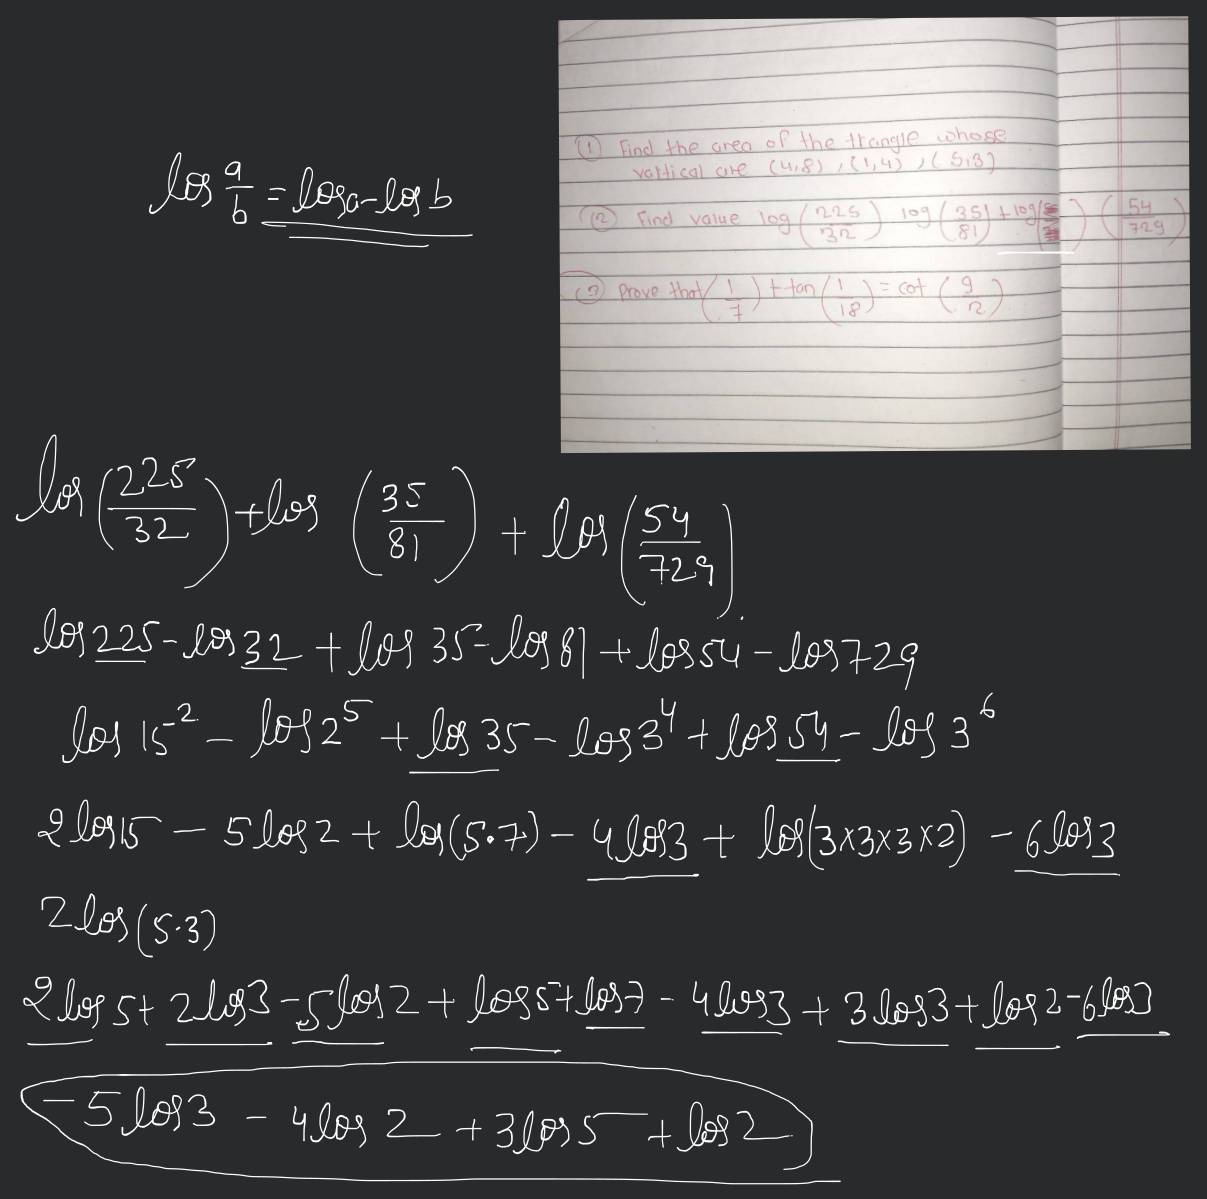 ① Find the area of the trangle whose
vartical are (4,8), (1,4), (5,3)
② Find value log (225/32) log (35/81) + log (54/729)
③ Prove that (1/7) + tan (1/18) = cot (9/2)
log a/b = log a - log b
log (225/32) + log (35/81) + log (54/729)
log 225 - log 32 + log 35 - log 81 + log 54 - log 729
log 15² - log 2⁵ + log 35 - log 3⁴ + log 54 - log 3⁶
2 log 15 - 5 log 2 + log (5·7) - 4 log 3 + log (3×3×3×2) - 6 log 3
2 log (5·3)
2 log 5 + 2 log 3 - 5 log 2 + log 5 + log 7 - 4 log 3 + 3 log 3 + log 2 - 6 log 3
-5 log 3 - 4 log 2 + 3 log 5 + log 2